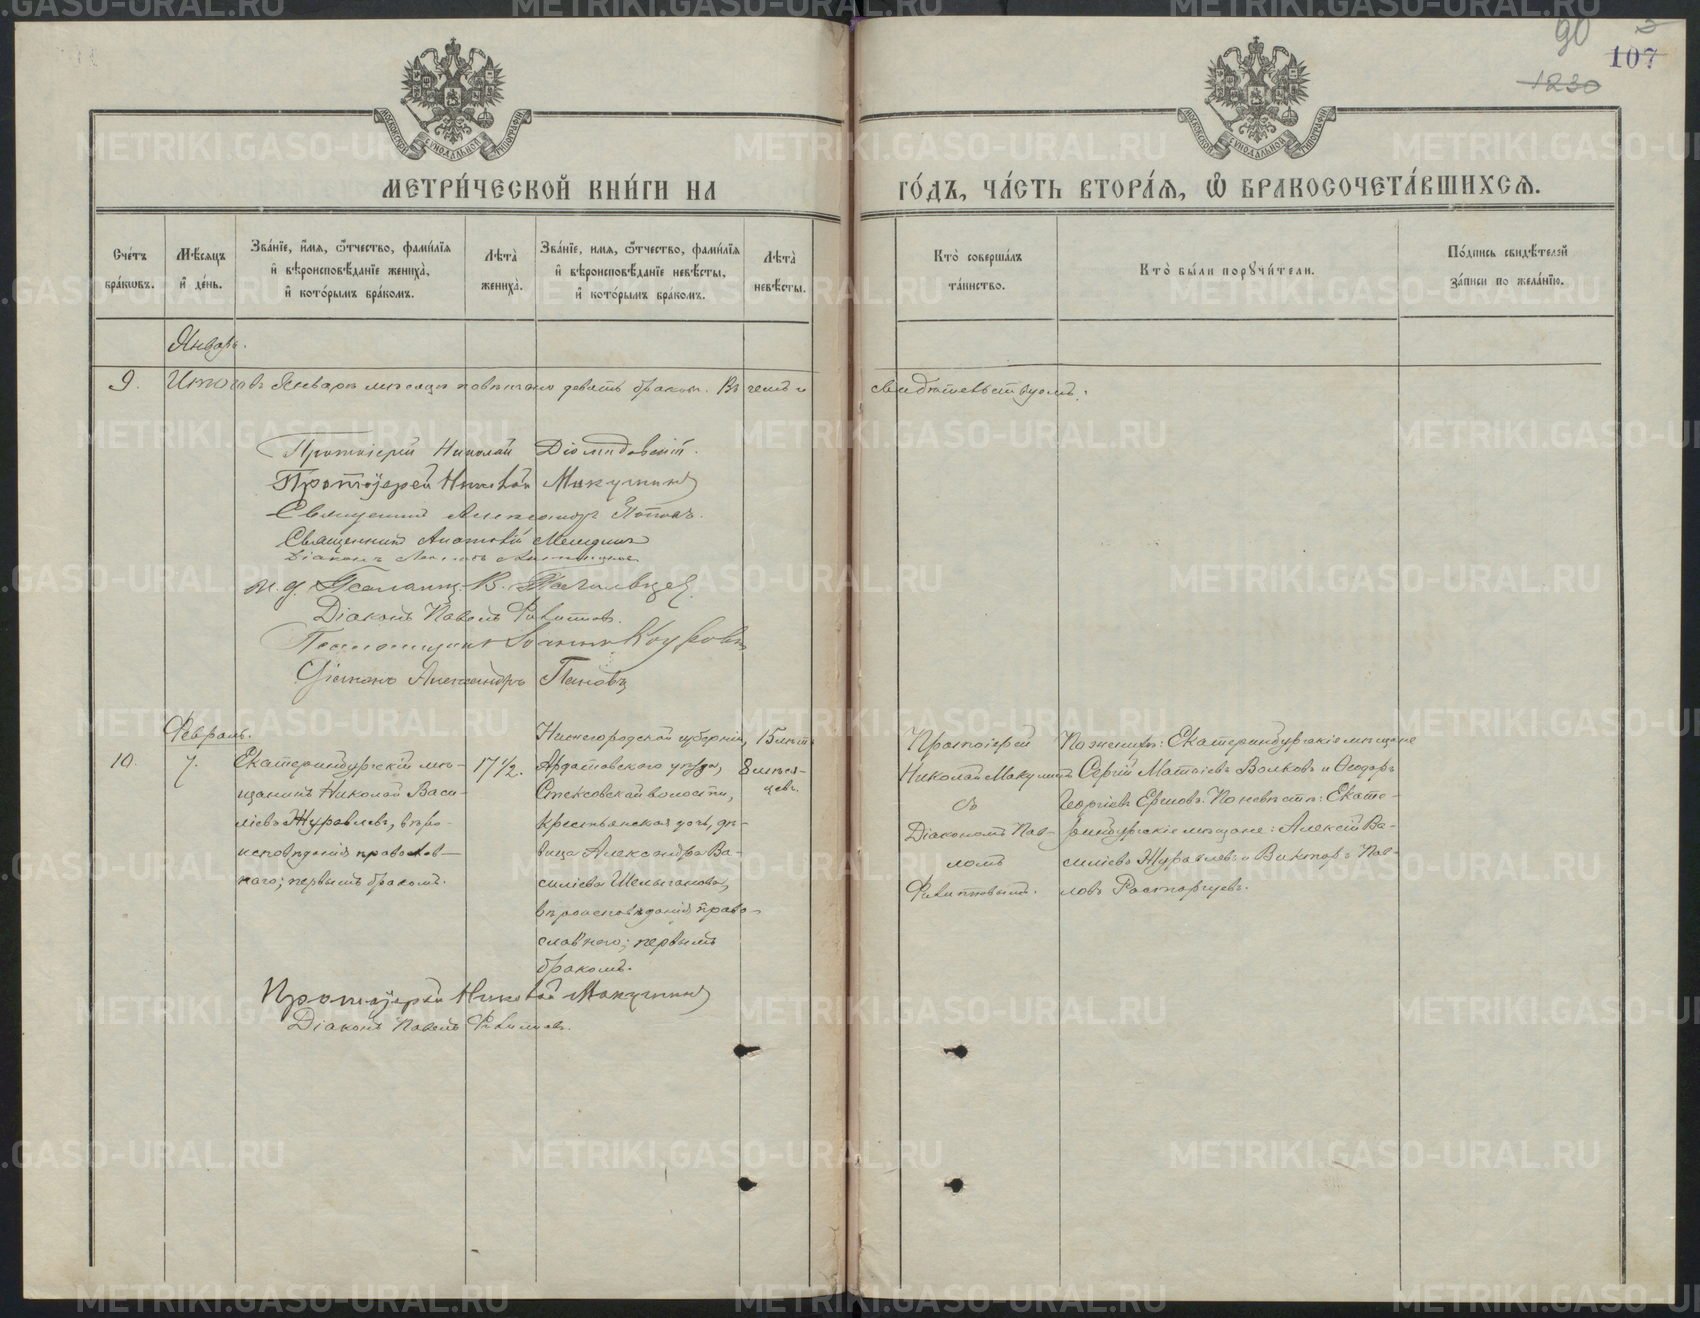 90
107
1230
МОСКОВСКОЙ СѴНОДАЛЬНОЙ ТИПОГРАФІИ
МОСКОВСКОЙ СѴНОДАЛЬНОЙ ТИПОГРАФІИ
МЕТРИ́ЧЕСКОЙ КНИ́ГИ НА
ГО́ДЪ, ЧА́СТЬ ВТОРА́Ѧ, Ѽ БРАКОСОЧЕТА́ВШИХСѦ.
Сче́тъ бра́кѡвъ.
Мѣ́сѧцъ и҆ де́нь.
Зва́нїе, и҆́мѧ, ѻ҆́тчество, фами́лїѧ и҆ вѣроисповѣ́данїе жениха̀, и҆ кото́рымъ бра́комъ.
Лѣта̀ жениха̀.
Зва́нїе, имѧ, ѻ҆́тчество, фами́лїѧ и҆ вѣроисповѣ́данїе невѣ́сты, и҆ кото́рымъ бра́комъ.
Лѣта̀ невѣ́сты.
Кто̀ соверша́лъ та́инство.
Кто̀ бы́ли порꙋчи́тели.
По́дпись свидѣ́телей за́писи по жела́нїю.
Январь.
9. Итого въ Январѣ мѣсяцѣ повѣнчано девять браковъ. Въ чемъ и свидѣтельствуемъ:
Протоіерей Николай Діомидовскій.
Протоіерей Николай Макушинъ
Священникъ Александръ Поповъ.
Священникъ Анатолій
Діаконъ
и. д. Псаломщ. В.
Діаконъ Павелъ Филитовъ.
Псаломщикъ
Діаконъ Александръ Пановъ
Февраль.
10.
7.
Екатеринбургскій мѣ-
щанинъ Николай Васи-
ліевъ Журавлевъ, вѣро-
исповѣданія православ-
наго; первымъ бракомъ.
17½.
Нижегородской губерніи,
Ардатовскаго уѣзда,
Стексовской волости,
крестьянская дочь, дѣ-
вица Александра Ва-
силіева Шелыганова,
вѣроисповѣданія право-
славнаго; первымъ
бракомъ.
15 лѣтъ
8 мѣся-
цевъ.
Протоіерей
Николай Макушинъ
съ
Діакономъ Пав-
ломъ
Филитовымъ.
По женихѣ: Екатеринбургскіе мѣщане
Сергій Матвіевъ Волковъ и Ѳеодоръ
Георгіевъ Ершовъ. По невѣстѣ: Екате-
ринбургскіе мѣщане: Алексій Ва-
силіевъ Журавлевъ и Викторъ Пав-
ловъ Расторгуевъ.
Протоіерей Николай Макушинъ
Діаконъ Павелъ Филитовъ.
METRIKI.GASO-URAL.RU